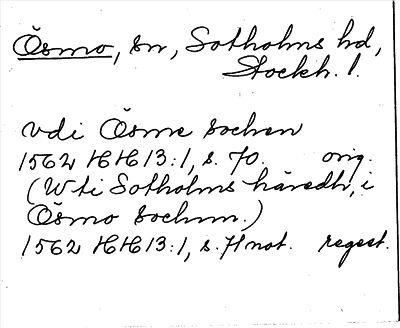 Ösmo, sn, Sotholms hd,
Stockh. l.
vdi Ösme sochen
1562 HH13:1, s. 70. orig.
(Wti Sotholms häredh, i
Ösmo sochnn.)
1562 HH13:1, s. 71 not. regest.